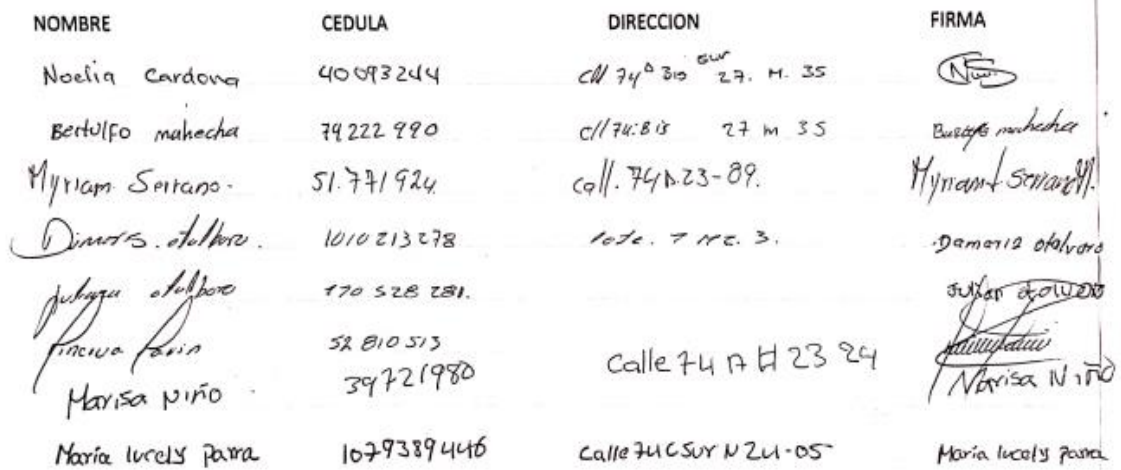 NOMBRE CEDULA DIRECCION FIRMA
Noelia Cardona 40093244 cll 74A Bis sur 27. M. 35
Bertulfo mahecha 79222990 cll 74:Bis 27 m 35 mahecha
Myriam Serrano. 51.771924 call. 74A.23-89. Myriam Serrano
otalboro. 1010213278 lote. 7 mz. 3. Damaris otalvaro
otalboro 170 528 281. Julian
52 810 513
Marisa Niño 39721980 Calle 74 A # 23 24 Marisa Niño
Maria lucely Parra 1079389446 Calle 74 C Sur N 24-05 Maria lucely Parra